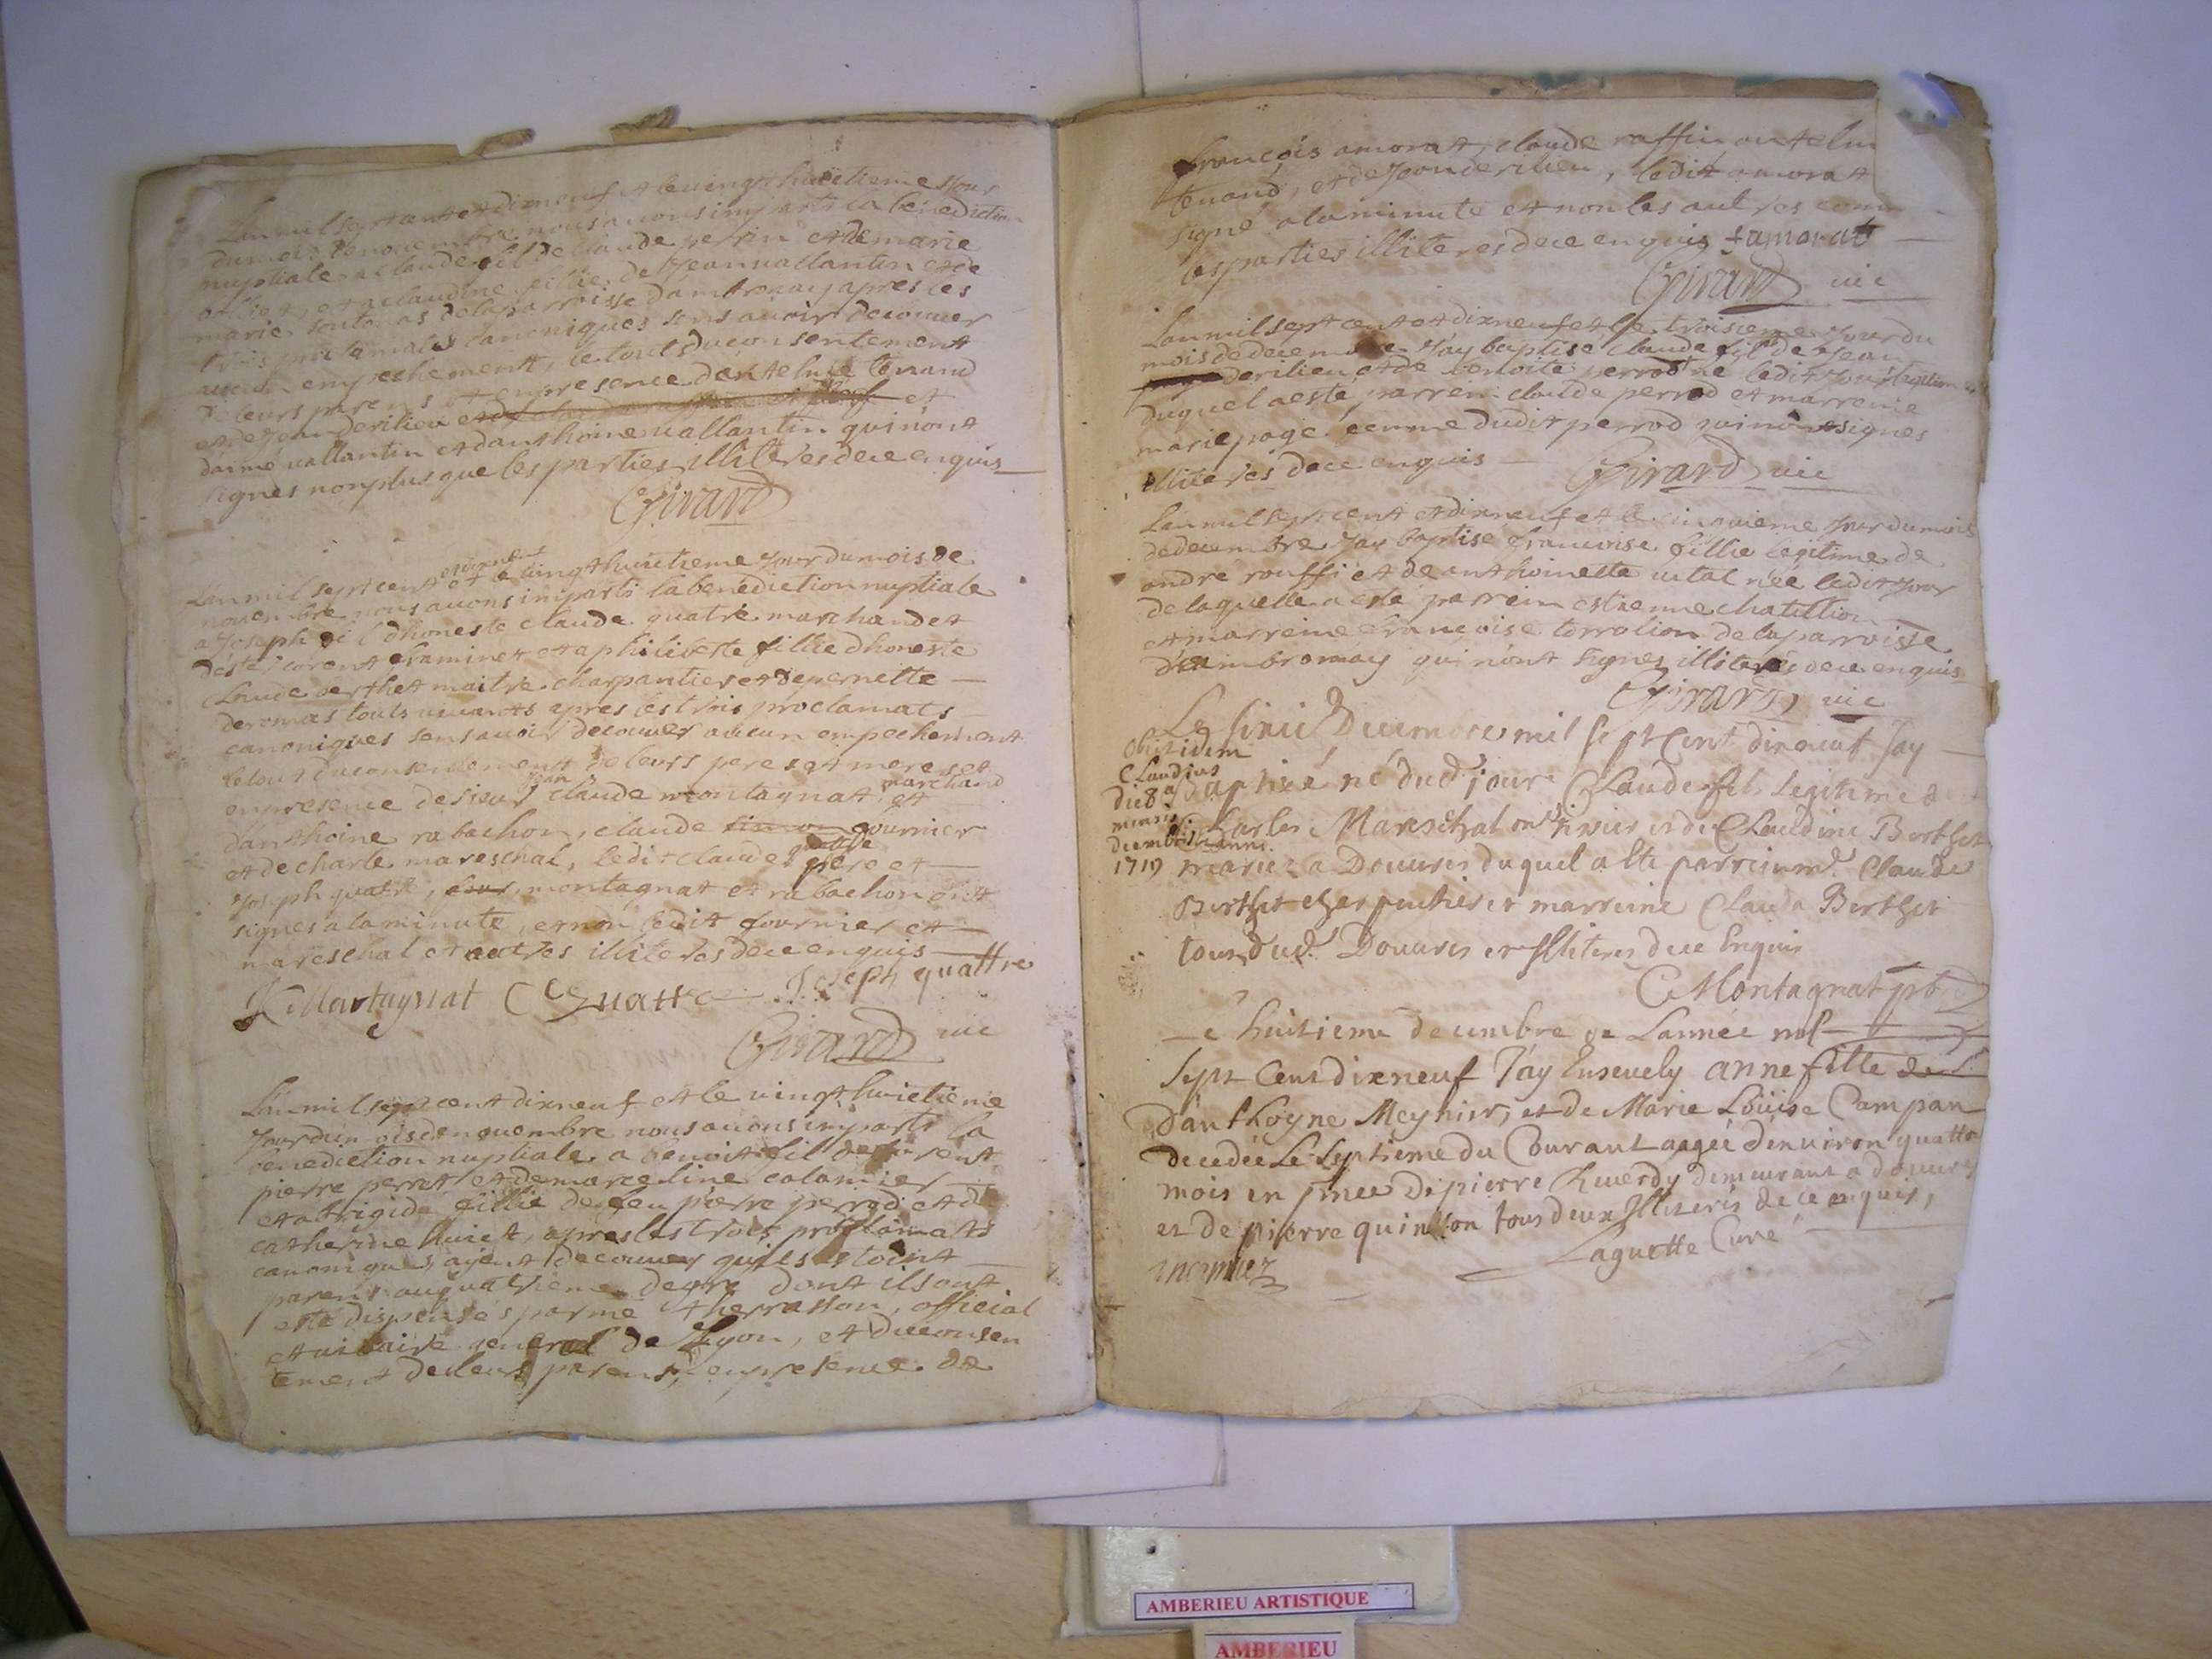 Lan mil sept cent et dixneuf et le vingt huictieme jour
du mois de novembre nous avons imparti la benediction
nuptiale a claude fil de claude perrin et de marie
et a claudine fillie de jean vallantin et de
marie de la parroisse dambronay apres les
trois proclamats canoniques sens avoir decouver
aucun empechement, le tout du consentement
de leurs parens et en presence dantelme tenand
et de jean derilieu et
daimé vallantin et danthoine vallantin qui nont
signes non plus que les parties illiteres de ce enquis
Girard
Lan mil sept cent et dixneuf et le vingt huictieme jour du mois de
novembre nous avons imparti la benediction nuptiale
a joseph fil dhoneste claude quatre marchand et
et a philiberte fillie dhoneste
claude berthet maitre charpantier et de pernette
deromas touts apres les trois proclamats
canoniques sens avoir decouver aucun empechement
le tout du consentement de leurs peres et meres et
en presence de sieur jean claude montagnat marchand et
danthoine rabachon, claude fournier
et de charle mareschal, ledit claude quattre pere et
joseph quatre, montagnat et rabachon ont
signes a la minute, et non ledit fournier et
mareschal et autres illiteres de ce enquis
J C Montagnat C Quattre Joseph quattre
Girard vic
Lan mil sept cent dixneuf et le vingt huictieme
jour du mois de novembre nous avons imparti la
benediction nuptiale a benoit fil de
pierre perret et de marceline colomier
et a brigide fillie de feu pierre perrod et de
catherine huiet, apres les trois proclamats
canoniques, ayent decouver quils estoint
parens au quatrieme degre dont ils ont
esté dispensés par me therrasson, official
et vicaire general de Lyon, et du consen
tement de leurs parens, en presence de
françois amorat, claude raffin antelm
tenand, et de jean derilieu, ledit amorat
signé a la minute et non les autres comm
les parties illiteres de ce enquis f amorat
Girard vic
Lan mil sept cent et dixneuf et le troisieme jour du
mois de decembre jay baptisé claude fil de jean
derilieu et de benoite perrod né ledit jour legitim
duquel a esté parrein claude perrod et marreine
marie page femme dudit perrod qui nont signes
illiteres de ce enquis Girard vic
Lan mil sept cent et dixneuf et le cinquieme jour du mois
de decembre jay baptisé francoise fillie legitime de
andre rouffi et de anthoinette vital née ledit jour
de laquelle a esté parrein estienne chatillion
et marreine françoise terralion de la parroisse
d'ambronay qui nont signes illiteres de ce enquis
Girard vic
Le sixie Decembres mil sept cent dixneuf Jay
baptisé né dud. jour Claude fils legitime de
Obiit idem
Claudius
die 8a
mensis
decembris anni
1719
Charles Mareschal et de Claudine Berthet
mariez a Douvres duquel a ete parrein me. Claude
Berthet charpentier et marreine Clauda Berthet
tous dud. Douvres et Illiteres de ce Enquis
C Montagnat pbr
Le huitieme decembre de Lannée mil
sept Cent dixneuf J'ay Ensevely anne fille de
D'anthoyne Meynier, et de Marie Loüise Campan
decedée Le septieme du Courant aagée d'environ quatre
mois en pnce De pierre demeurant a douvres
et de pierre quinson tous deux Illiterés de ce enquis,
Laguette Curé
meynier
AMBERIEU ARTISTIQUE
AMBERIEU